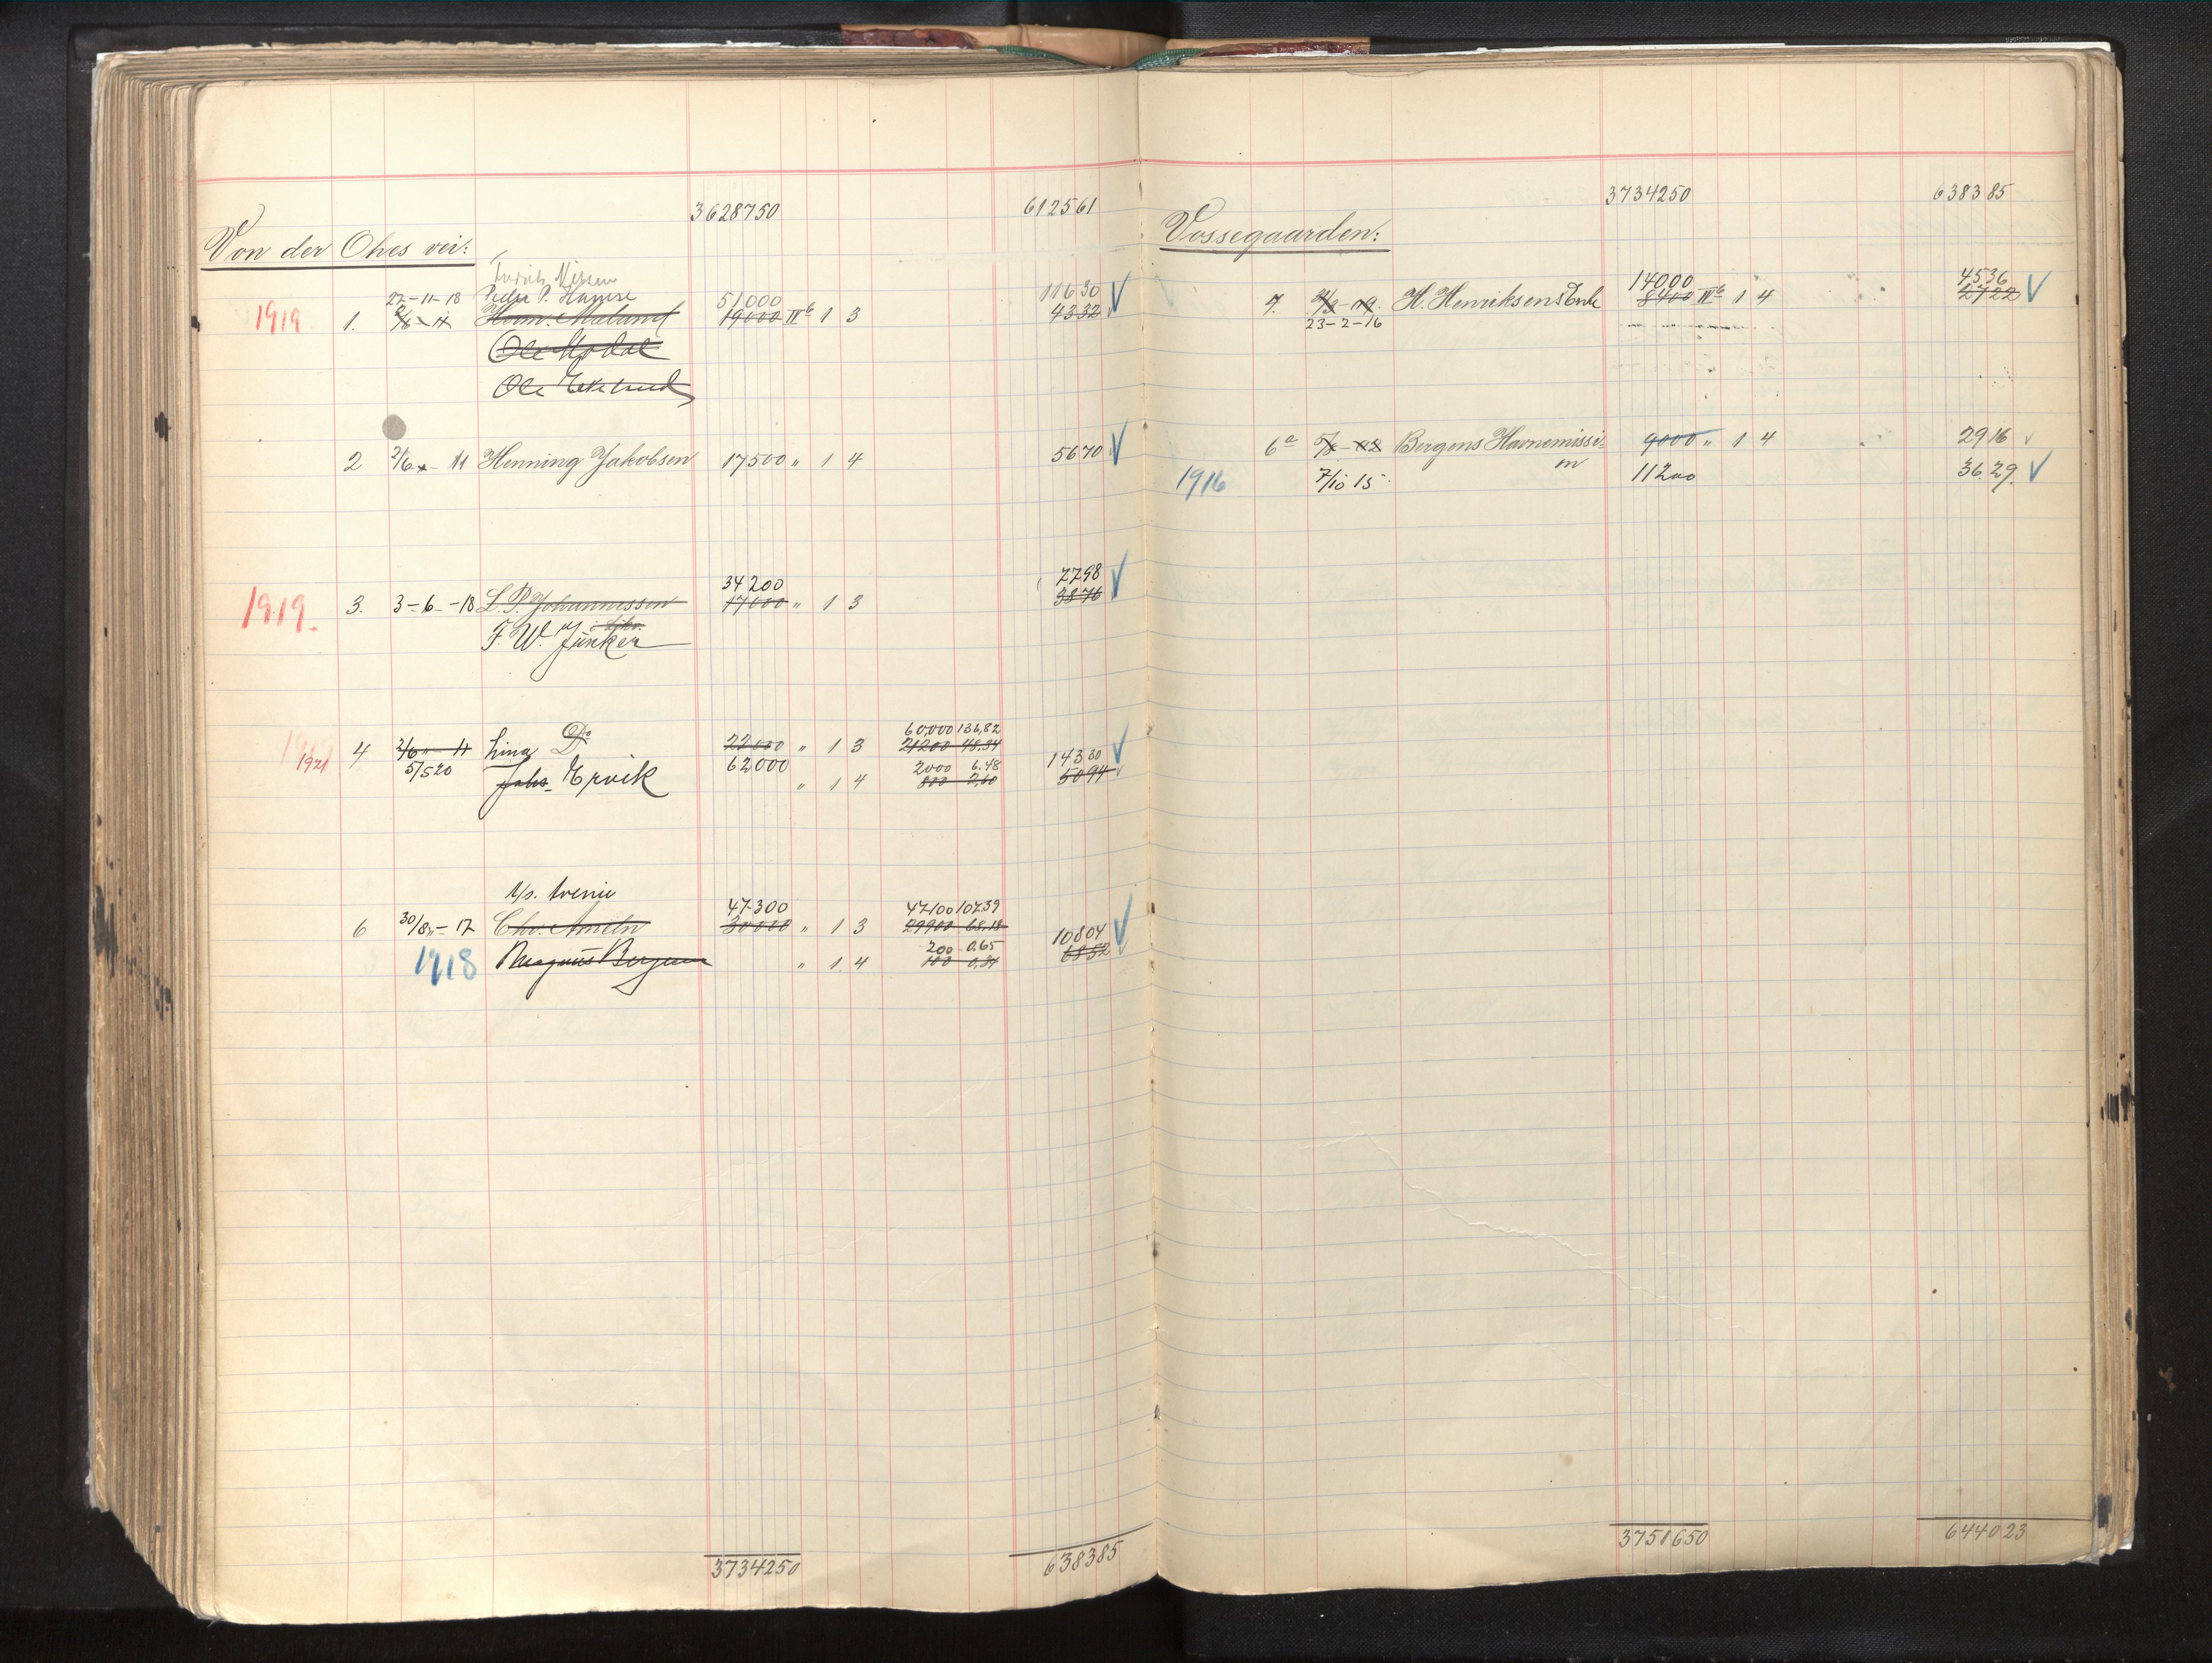 3628750 612561
Von der Ohes vei:
22-11-18 Peder P.
51000 11630
1919 1. 19000 IV b 1 3 4332
Ole Mjødal
Ole
2 2/6 - 11 Henning Jakobsen 17500 " 1 4 5670
34200 7798
1919 3. 3-6-18 L. P. Johannessen 17000 " 1 3 3876
F. W. Junker
60,000 136,82
4 2/6 - 11 Lina Do 22000 " 1 3 21200 48.34
1921 5/5 20 62000 2000 6.48 14330
Johs. Ervik " 1 4 800 2,60 5094
47300 47100 107.39
6 30/8 - 17 Chr. Ameln 30000 " 1 3 29900 68.18
200 0.65 10804
1918 Magnus Bergman " 1 4 100 0,34 6852
3734250 638385
3734250 638385
Vossegaarden:
14000 4536
7. H. Henriksens Enke 8400 IV b 1 4 2722
23-2-16
6a Bergens Havnemissi- 9000 " 1 4 2916
on
1916 7/10 15 11200 36.29
3751650 644023